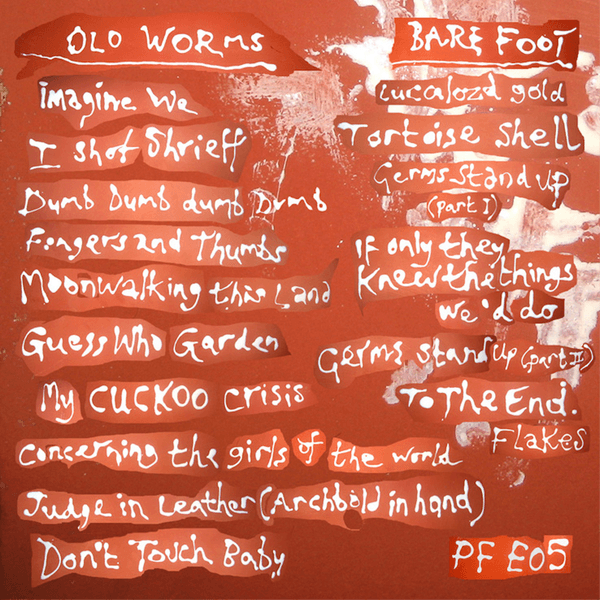 OLD WORMS
Imagine We
I shot Shrieff
Dumb Dumb dumb Dumb
Fingers and Thumbs
Moonwalking this Land
Guess Who Garden
My CUCKOO crisis
concerning the girls of the world
Judge in Leather (Archbold in hand)
Don't Touch Baby
BARE FOOT
Lucalozd gold
Tortoise shell
Germs Stand Up
(part I)
If only they
Knew the things
we'd do
Germs stand Up (part II)
To The End.
Flakes
PF E05